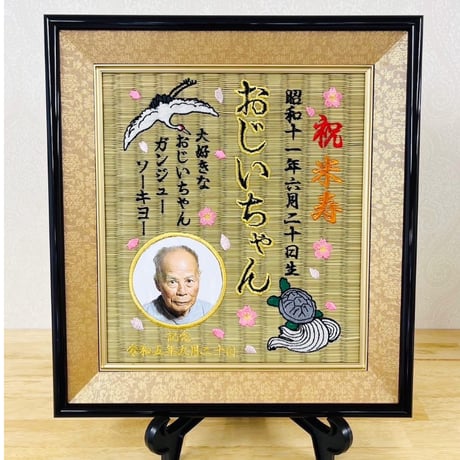 祝米寿
昭和十一年六月二十日生
おじいちゃん
大好きな
おじいちゃん
ガンジュー
ソーキヨー
記念
令和五年六月二十日